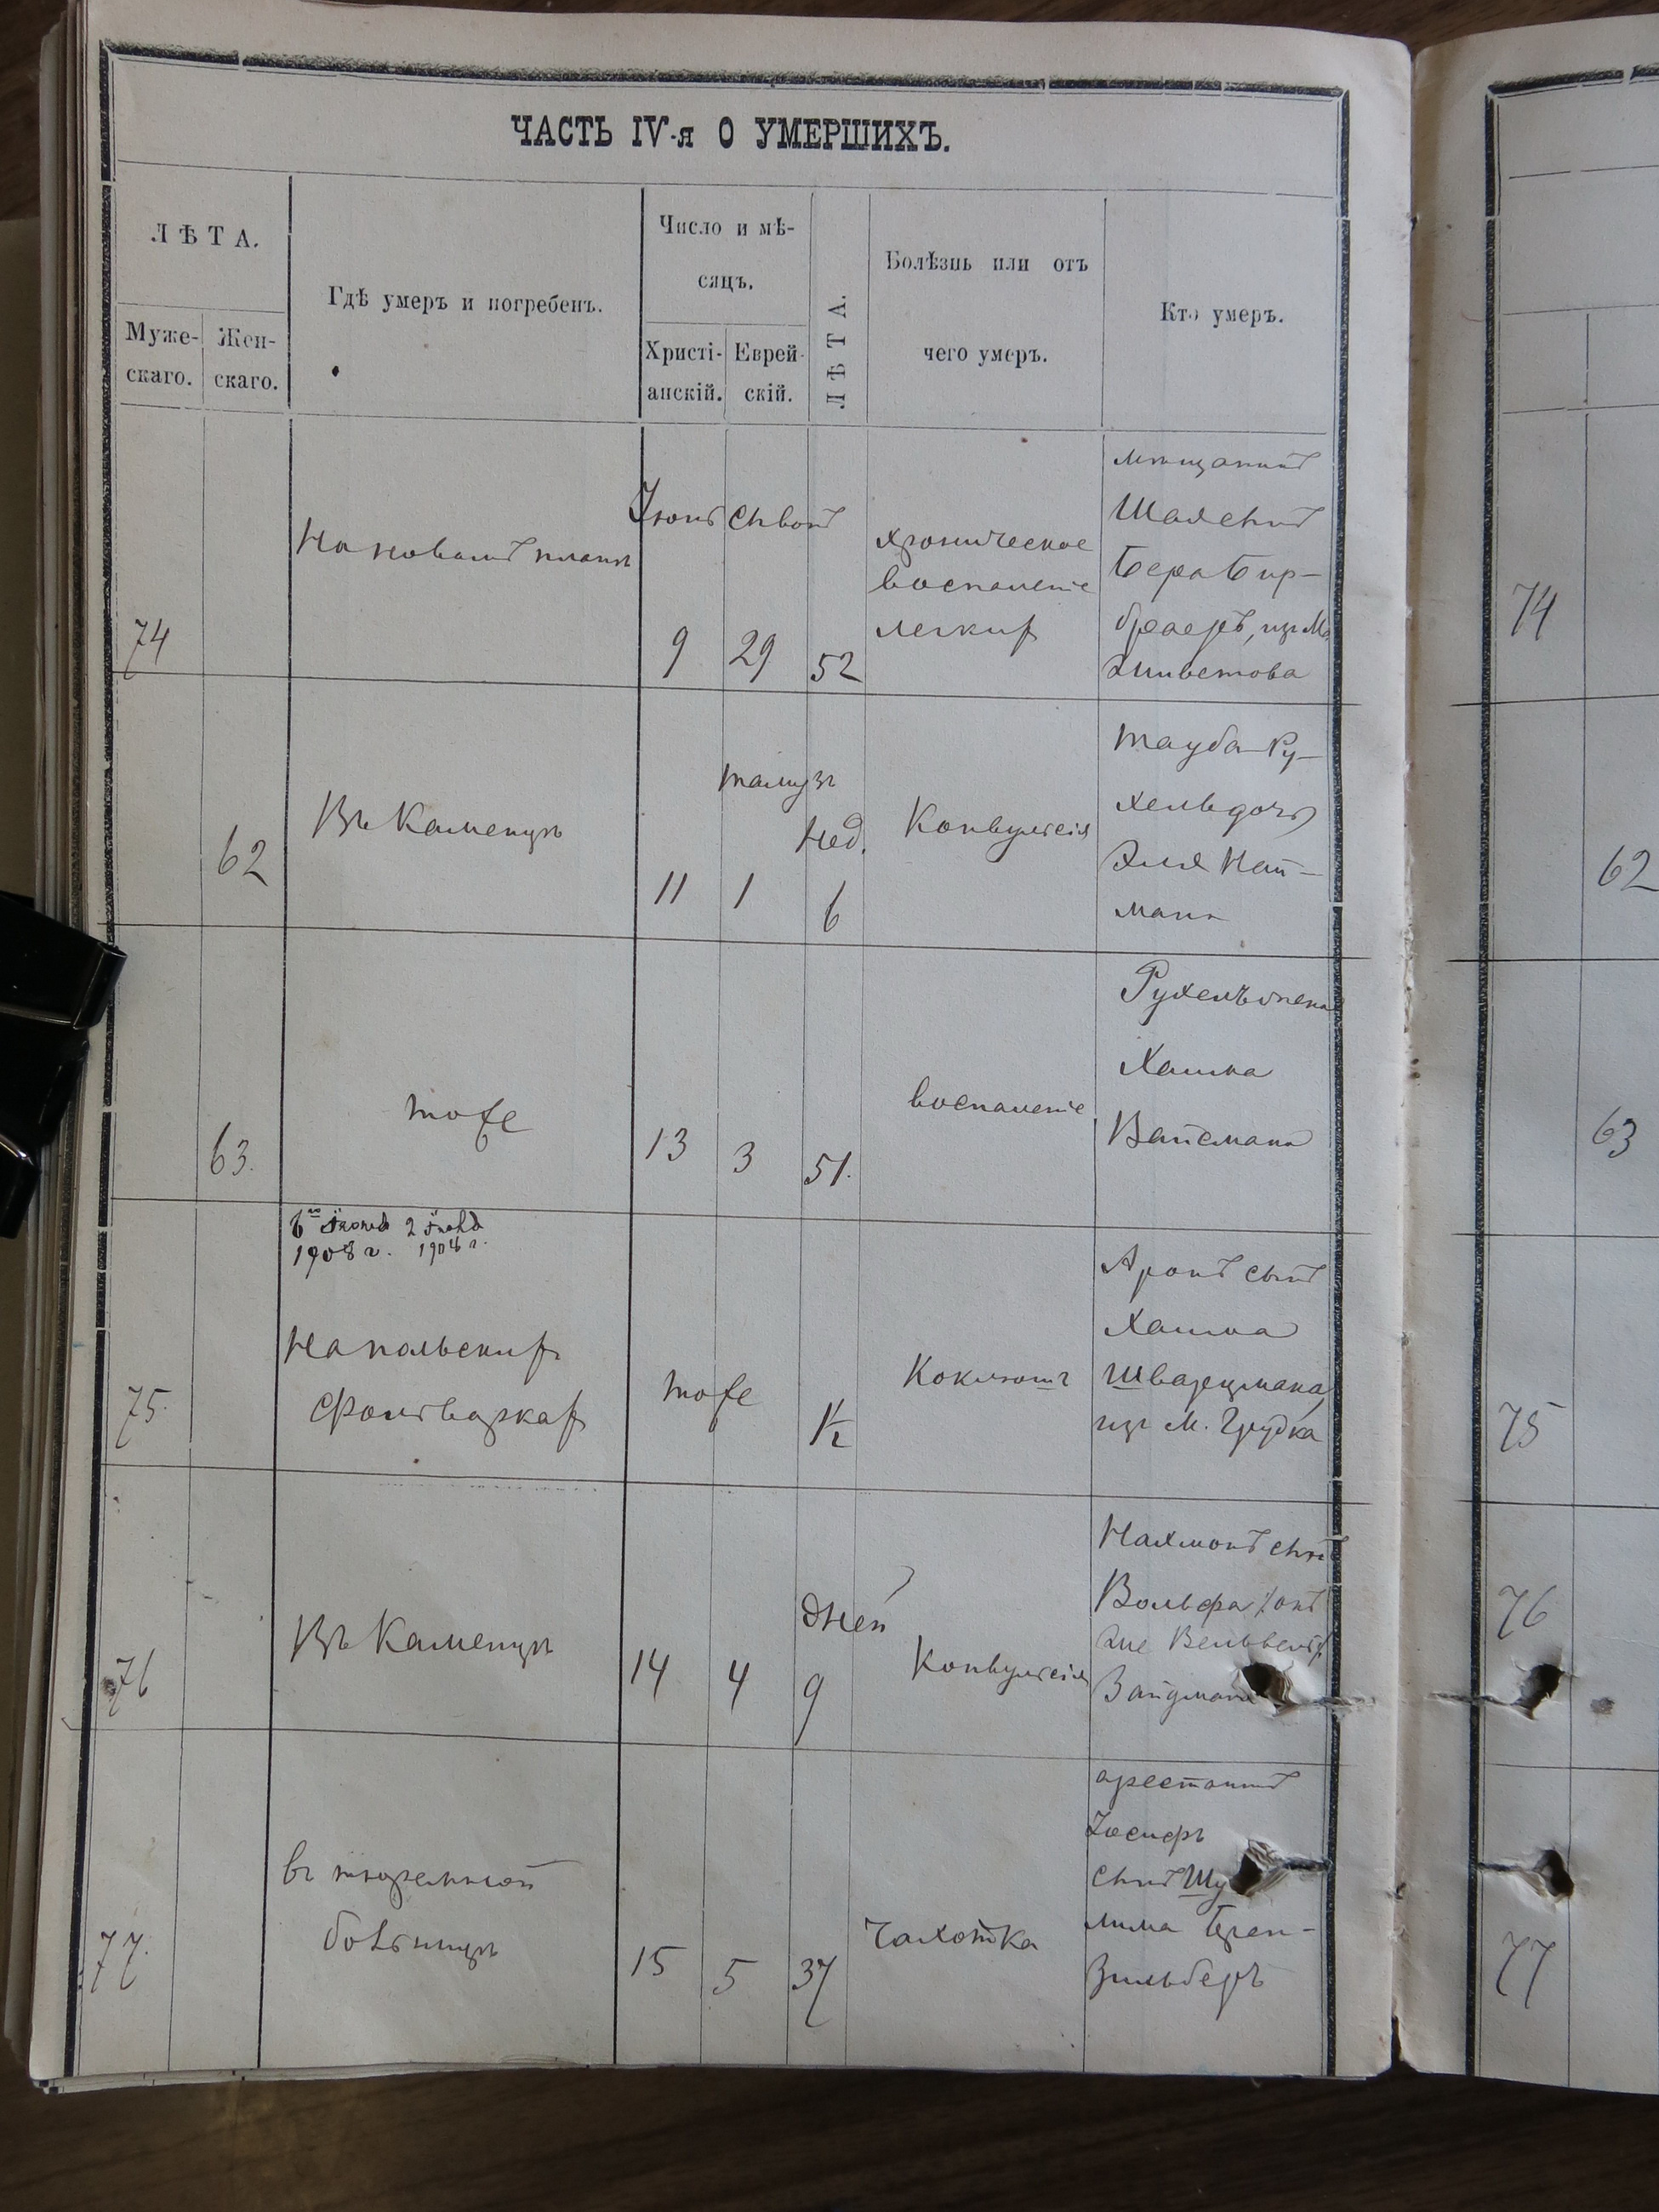 ЧАСТЬ IV-я О УМЕРШИХЪ.
ЛѢТА.
Муже-
скаго.
Жен-
скаго.
Гдѣ умеръ и погребенъ.
Число и мѣ-
сяцъ.
Христі-
анскій.
Еврей-
скій.
ЛѢТА.
Болѣзнь или отъ
чего умеръ.
Кто умеръ.
74
На новомъ планѣ
Іюнь
9
Сивонъ
29
52
хроническое
воспаленіе
легкихъ
мѣщанинъ
Бера Бир-
браеръ, изъ М.
74
62
Въ Каменцѣ
11
тамузъ
1
Нед.
6
Конвульсія
Тауба-Ру-
хель дочь
Эля Най-
мана
62
63.
тоже
13
3
51.
воспаленіе
Рухель жена
Хаима
Вайсмана
63
1908 г.
75.
На польскихъ
фольваркахъ
тоже
1/2
Коклюшъ
Аронъ сынъ
Хаима
Шварцмана,
изъ М. Грудка
75
76
Въ Каменцѣ
14
4
дней
9
Конвульсія
Нахмонъ сынъ
Вольфа /онъ
же
Зайдмана
76
77.
въ тюремной
больницѣ
15
5
37
Чахотка
арестантъ
Іосифъ
сынъ Шу
лима Брен-
зильберъ
77